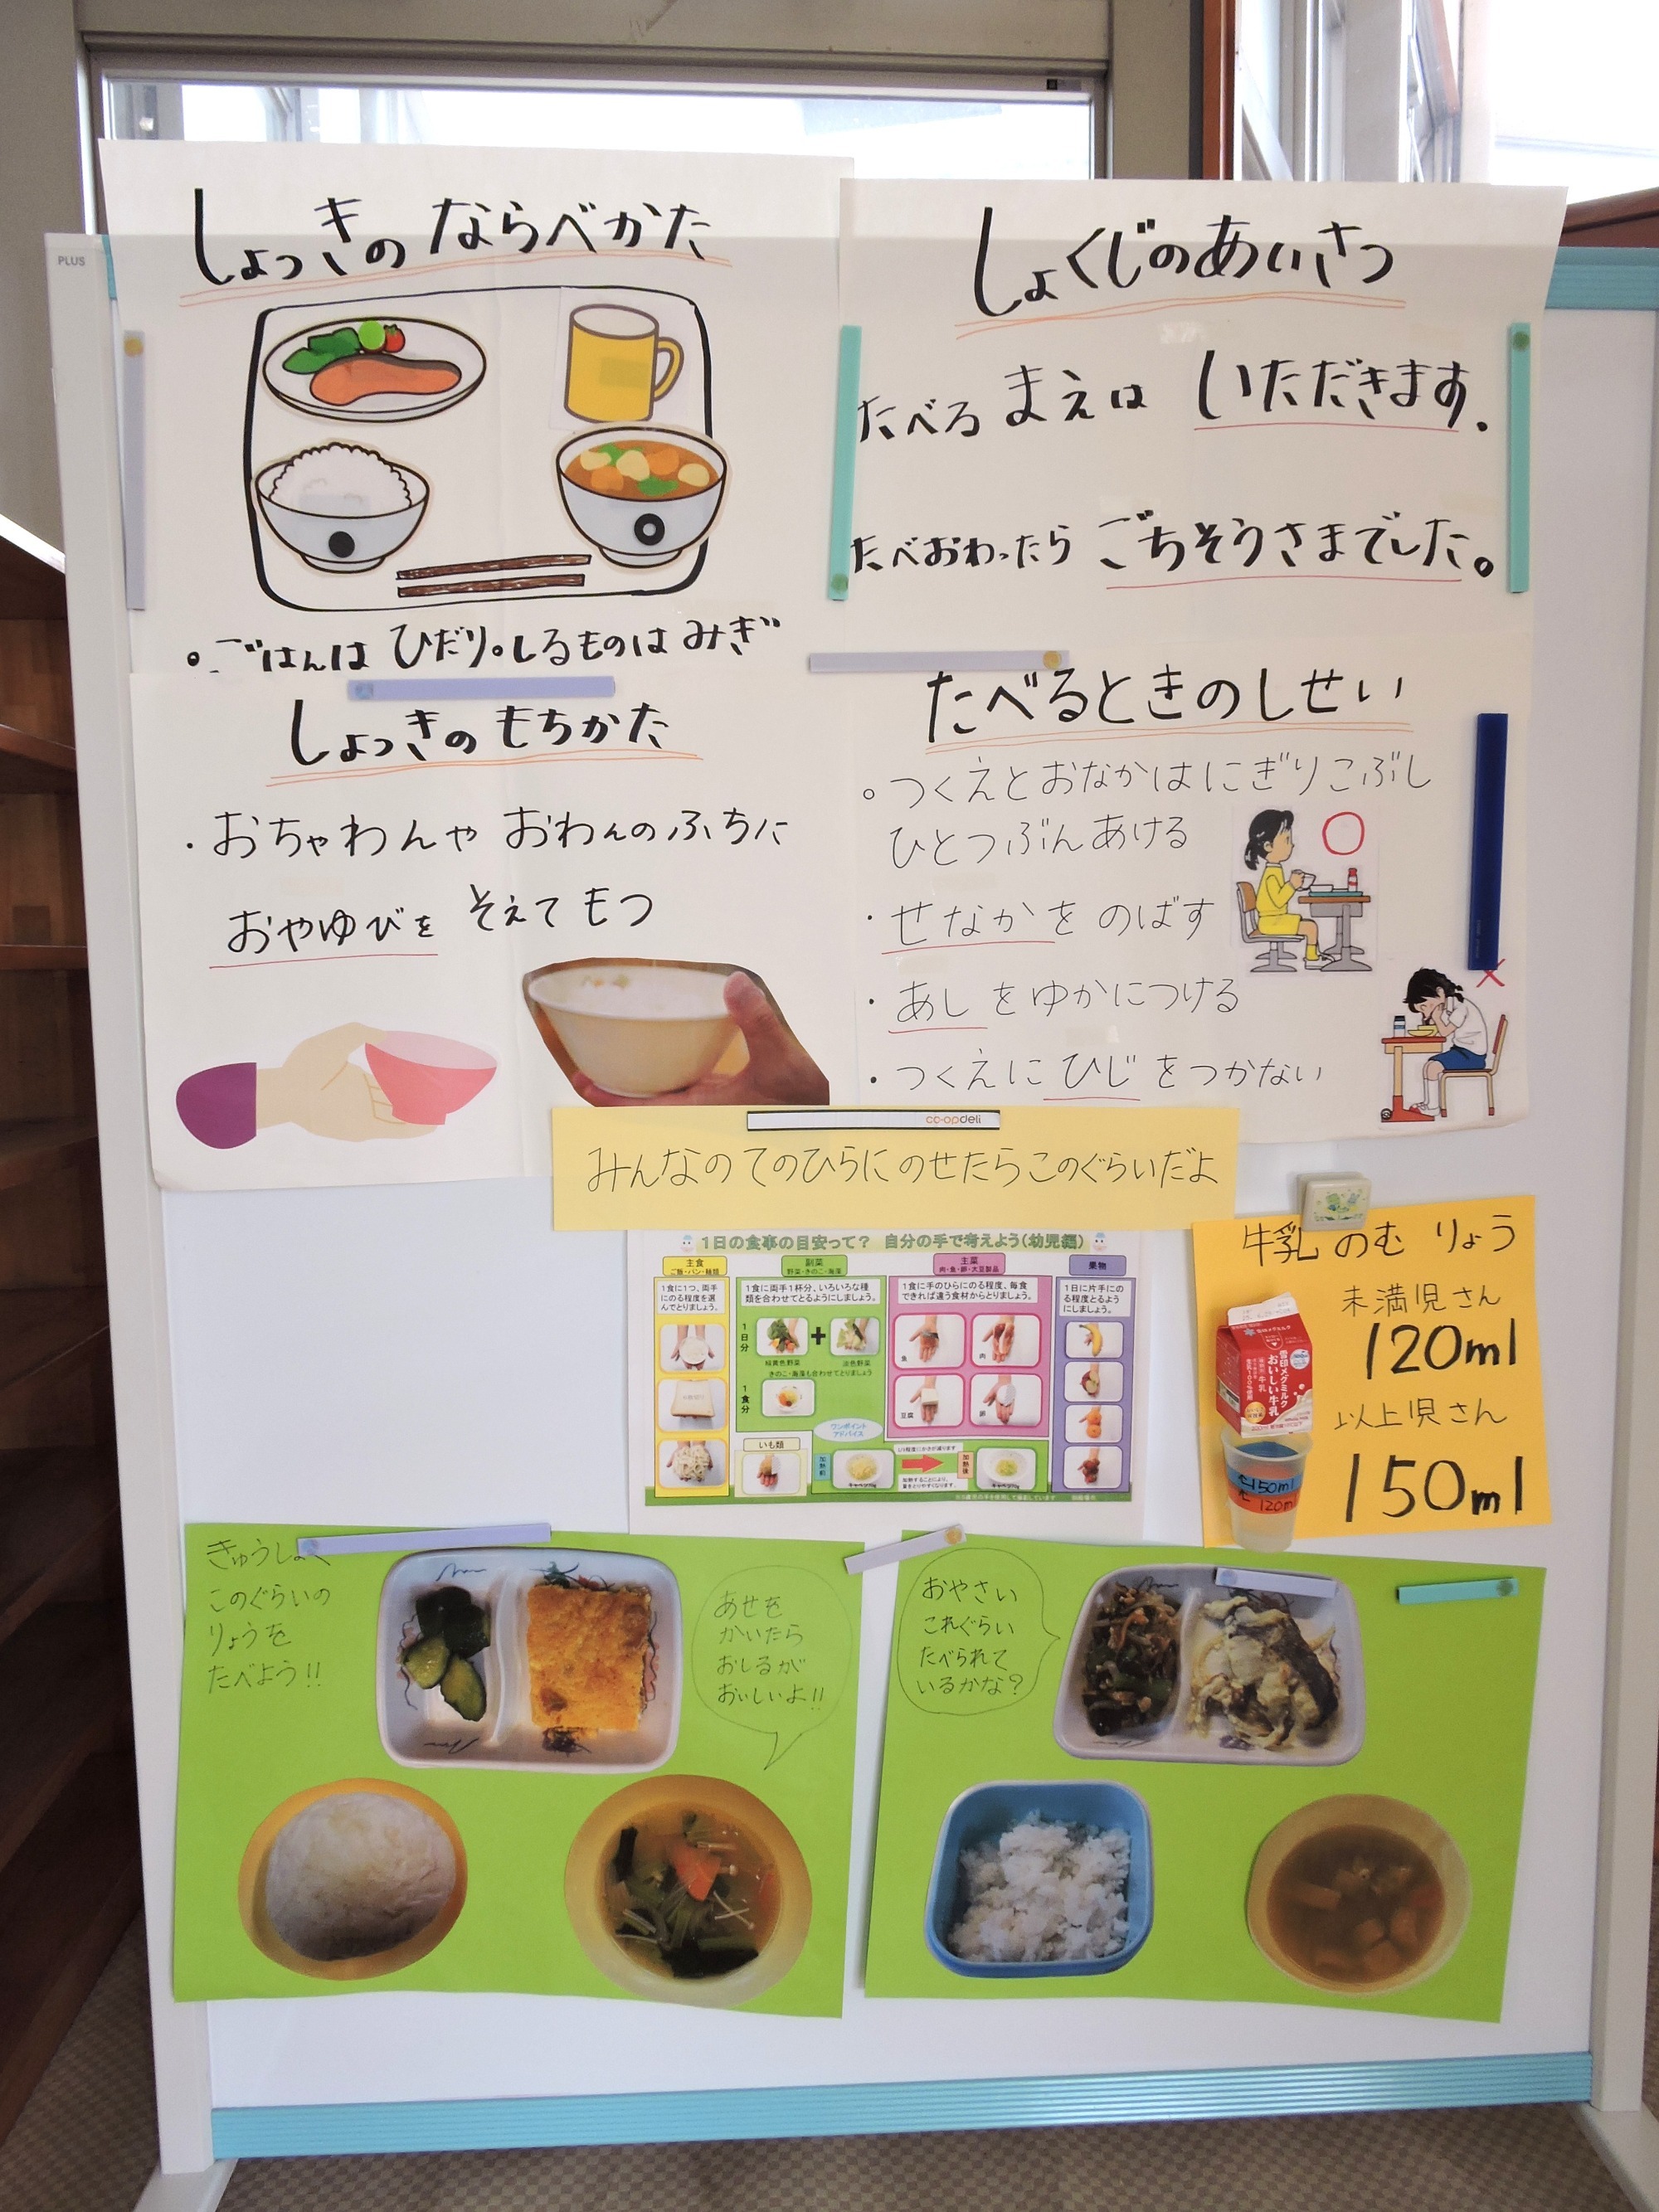 PLUS
しょっきのならべかた
・ごはんは ひだり。しるものは みぎ
しょくじのあいさつ
たべる まえは いただきます.
たべおわったら ごちそうさまでした。
しょっきの もちかた
・おちゃわんや おわんの ふちに
おやゆびを そえて もつ
たべるときのしせい
○つくえとおなかはにぎりこぶし
ひとつぶんあける
・せなかを のばす
・あしをゆかにつける
・つくえに ひじ をつかない
co-opdeli
みんなのてのひらにのせたらこのぐらいだよ
1日の食事の目安って? 自分の手で考えよう(幼児編)
主食
ご飯・パン・麺類
1食に1つ、両手
にのる程度を選
んでとりましょう。
副菜
野菜・きのこ・海藻
1食に両手1杯分、いろいろな種
類を合わせてとるようにしましょう。
1日分
+
緑黄色野菜
淡色野菜
きのこ・海藻も合わせてとりましょう
1食分
いも類
ワンポイント
アドバイス
主菜
肉・魚・卵・大豆製品
1食に手のひらにのる程度、毎食
できれば違う食材からとりましょう。
魚
肉
豆腐
卵
加熱前
加熱後
加熱することにより、
果物
1日に片手にの
る程度とるよう
にしましょう。
牛乳 のむ りょう
未満児さん
120ml
以上児さん
150ml
雪印メグミルク
おいしい牛乳
150ml
120ml
きゅうしょく
このぐらいの
りょうを
たべよう!!
あせを
かいたら
おしるが
おいしいよ!!
おやさい
これぐらい
たべられて
いるかな?